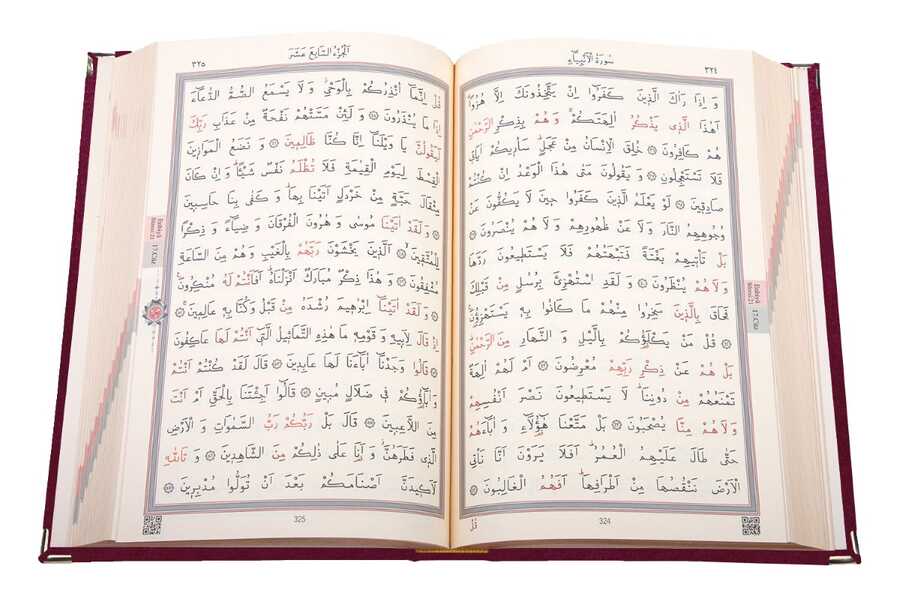 سُورَةُ الْأَنْبِيَاءِ ٣٢٤
وَ اِذَا رَاٰكَ الَّذٖينَ كَفَرُٓوا اِنْ يَتَّخِذُونَكَ اِلَّا هُزُوًا
اَهٰذَا الَّذٖى يَذْكُرُ اٰلِهَتَكُمْ وَ هُمْ بِذِكْرِ الرَّحْمٰنِ
هُمْ كَافِرُونَ ۝ خُلِقَ الْاِنْسَانُ مِنْ عَجَلٍ سَاُرٖيكُمْ اٰيَاتٖى
فَلَا تَسْتَعْجِلُونِ ۝ وَ يَقُولُونَ مَتٰى هٰذَا الْوَعْدُ اِنْ كُنْتُمْ
صَادِقٖينَ ۝ لَوْ يَعْلَمُ الَّذٖينَ كَفَرُوا حٖينَ لَا يَكُفُّونَ عَنْ
وُجُوهِهِمُ النَّارَ وَ لَا عَنْ ظُهُورِهِمْ وَ لَا هُمْ يُنْصَرُونَ ۝
بَلْ تَاْتٖيهِمْ بَغْتَةً فَتَبْهَتُهُمْ فَلَا يَسْتَطٖيعُونَ رَدَّهَا
وَ لَا هُمْ يُنْظَرُونَ ۝ وَ لَقَدِ اسْتُهْزِئَ بِرُسُلٍ مِنْ قَبْلِكَ
فَحَاقَ بِالَّذٖينَ سَخِرُوا مِنْهُمْ مَا كَانُوا بِهٖ يَسْتَهْزِؤُنَ
۝ قُلْ مَنْ يَكْلَؤُكُمْ بِالَّيْلِ وَ النَّهَارِ مِنَ الرَّحْمٰنِ
بَلْ هُمْ عَنْ ذِكْرِ رَبِّهِمْ مُعْرِضُونَ ۝ اَمْ لَهُمْ اٰلِهَةٌ
تَمْنَعُهُمْ مِنْ دُونِنَا لَا يَسْتَطٖيعُونَ نَصْرَ اَنْفُسِهِمْ
وَ لَا هُمْ مِنَّا يُصْحَبُونَ ۝ بَلْ مَتَّعْنَا هٰٓؤُلَٓاءِ وَ اٰبَٓاءَهُمْ
حَتّٰى طَالَ عَلَيْهِمُ الْعُمُرُ اَفَلَا يَرَوْنَ اَنَّا نَاْتِى
الْاَرْضَ نَنْقُصُهَا مِنْ اَطْرَافِهَا اَفَهُمُ الْغَالِبُونَ ۝
قُلْ
324
Enbiyâ Sûresi 21
17.Cüz
اَلْجُزْءُ السَّابِعَ عَشَرَ ٣٢٥
قُلْ اِنَّمَٓا اُنْذِرُكُمْ بِالْوَحْىِ وَ لَا يَسْمَعُ الصُّمُّ الدُّعَٓاءَ
اِذَا مَا يُنْذَرُونَ ۝ وَ لَئِنْ مَسَّتْهُمْ نَفْحَةٌ مِنْ عَذَابِ رَبِّكَ
لَيَقُولُنَّ يَا وَيْلَنَٓا اِنَّا كُنَّا ظَالِمٖينَ ۝ وَ نَضَعُ الْمَوَازٖينَ
الْقِسْطَ لِيَوْمِ الْقِيٰمَةِ فَلَا تُظْلَمُ نَفْسٌ شَيْـًٔا وَ اِنْ كَانَ
مِثْقَالَ حَبَّةٍ مِنْ خَرْدَلٍ اَتَيْنَا بِهَا وَ كَفٰى بِنَا حَاسِبٖينَ
۝ وَ لَقَدْ اٰتَيْنَا مُوسٰى وَ هٰرُونَ الْفُرْقَانَ وَ ضِيَٓاءً وَ ذِكْرًا
لِلْمُتَّقٖينَ ۝ اَلَّذٖينَ يَخْشَوْنَ رَبَّهُمْ بِالْغَيْبِ وَ هُمْ مِنَ السَّاعَةِ
مُشْفِقُونَ ۝ وَ هٰذَا ذِكْرٌ مُبَارَكٌ اَنْزَلْنَاهُ اَفَاَنْتُمْ لَهُ مُنْكِرُونَ
۝ وَ لَقَدْ اٰتَيْنَٓا اِبْرٰهٖيمَ رُشْدَهُ مِنْ قَبْلُ وَ كُنَّا بِهٖ عَالِمٖينَ ۝
اِذْ قَالَ لِاَبٖيهِ وَ قَوْمِهٖ مَا هٰذِهِ التَّمَاثٖيلُ الَّتٖٓى اَنْتُمْ لَهَا عَاكِفُونَ
۝ قَالُوا وَجَدْنَٓا اٰبَٓاءَنَا لَهَا عَابِدٖينَ ۝ قَالَ لَقَدْ كُنْتُمْ اَنْتُمْ
وَ اٰبَٓاؤُكُمْ فٖى ضَلَالٍ مُبٖينٍ ۝ قَالُٓوا اَجِئْتَنَا بِالْحَقِّ اَمْ اَنْتَ
مِنَ اللَّاعِبٖينَ ۝ قَالَ بَلْ رَبُّكُمْ رَبُّ السَّمٰوَاتِ وَ الْاَرْضِ
الَّذٖى فَطَرَهُنَّ وَ اَنَا عَلٰى ذٰلِكُمْ مِنَ الشَّاهِدٖينَ ۝ وَ تَاللّٰهِ
لَاَكٖيدَنَّ اَصْنَامَكُمْ بَعْدَ اَنْ تُوَلُّوا مُدْبِرٖينَ ۝
325
Enbiyâ Sûresi 21
17.Cüz